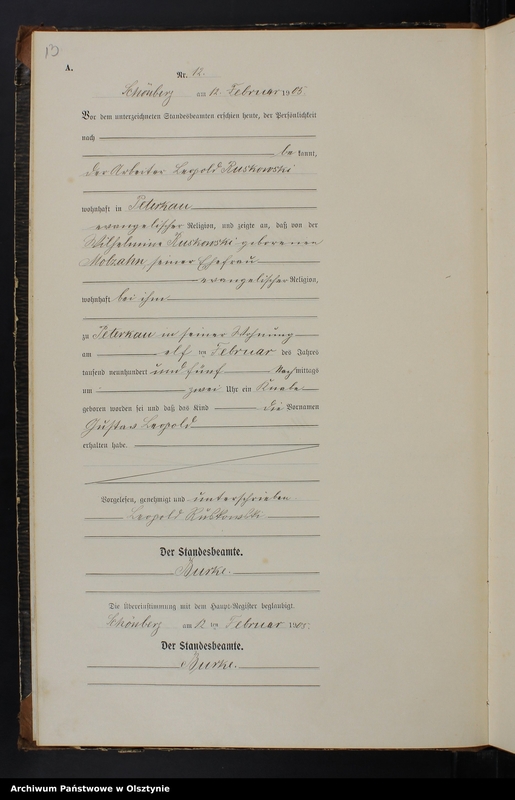 13
A.
Nr. 12.
Schönberg am 12. Februar 1905.
Vor dem unterzeichneten Standesbeamten erschien heute, der Persönlichkeit
nach
be kannt,
der Arbeiter Leopold Ruskowski
wohnhaft in Peterkau
evangelischer Religion, und zeigte an, daß von der
Wilhelmine Ruskowski geborenen
Molzahn seiner Ehefrau
evangelischer Religion,
wohnhaft bei ihm
zu Peterkau in seiner Wohnung
am elf ten Februar des Jahres
tausend neunhundert und fünf Nachmittags
um zwei Uhr ein Knabe
geboren worden sei und daß das Kind die Vornamen
Gustav Leopold
erhalten habe.
Vorgelesen, genehmigt und unterschrieben
Leopold Ruskowski
Der Standesbeamte.
Burke.
Die Übereinstimmung mit dem Haupt-Register beglaubigt.
Schönberg am 12 ten Februar 1905.
Der Standesbeamte.
Burke.
Archiwum Państwowe w Olsztynie